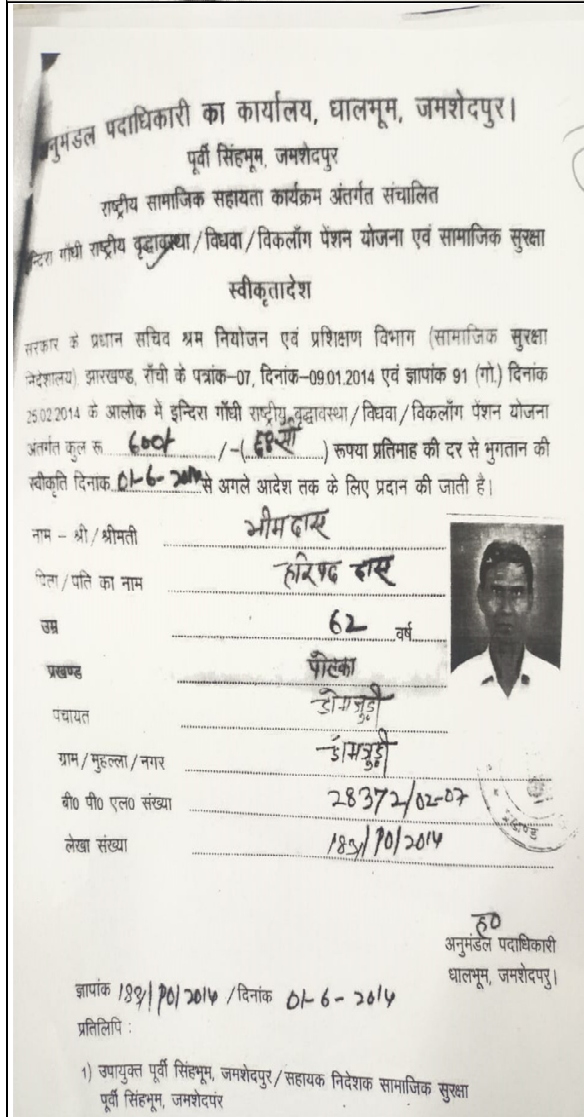 अनुमंडल पदाधिकारी का कार्यालय, धालभूम, जमशेदपुर।
पूर्वी सिंहभूम, जमशेदपुर
राष्ट्रीय सामाजिक सहायता कार्यक्रम अंतर्गत संचालित
इन्दिरा गाँधी राष्ट्रीय वृद्धावस्था/विधवा/विकलाँग पेंशन योजना एवं सामाजिक सुरक्षा
स्वीकृतादेश
सरकार के प्रधान सचिव श्रम नियोजन एवं प्रशिक्षण विभाग (सामाजिक सुरक्षा
निदेशालय) झारखण्ड, राँची के पत्रांक-07, दिनांक-09.01.2014 एवं ज्ञापांक 91 (गो.) दिनांक
25.02.2014 के आलोक में इन्दिरा गाँधी राष्ट्रीय वृद्धावस्था/विधवा/विकलाँग पेंशन योजना
अंतर्गत कुल रू 600/- /-( ) रूपया प्रतिमाह की दर से भुगतान की
स्वीकृति दिनाक 01-6-2014 से अगले आदेश तक के लिए प्रदान की जाती है।
नाम - श्री/श्रीमती भीम दास
पिता/पति का नाम दास
उम्र 62 वर्ष
प्रखण्ड पोटका
पंचायत डोमजुड़ी
ग्राम/मुहल्ला/नगर डोमजुड़ी
बी० पी० एल० संख्या 28372/02-07
लेखा संख्या /2014
ह०
अनुमंडल पदाधिकारी
धालभूम, जमशेदपुर।
ज्ञापांक /2014 /दिनांक 01-6-2014
प्रतिलिपि :
1) उपायुक्त पूर्वी सिंहभूम, जमशेदपुर/सहायक निदेशक सामाजिक सुरक्षा
पूर्वी सिंहभूम, जमशेदपुर